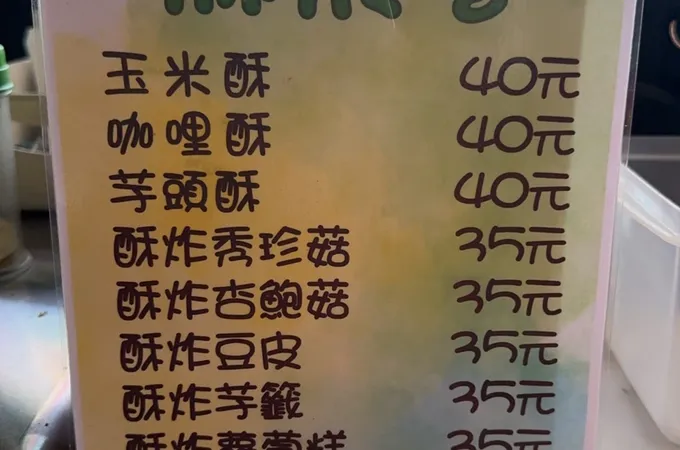 玉米酥 40元
咖哩酥 40元
芋頭酥 40元
酥炸秀珍菇 35元
酥炸杏鮑菇 35元
酥炸豆皮 35元
酥炸芋籤 35元
酥炸蘿蔔糕 35元